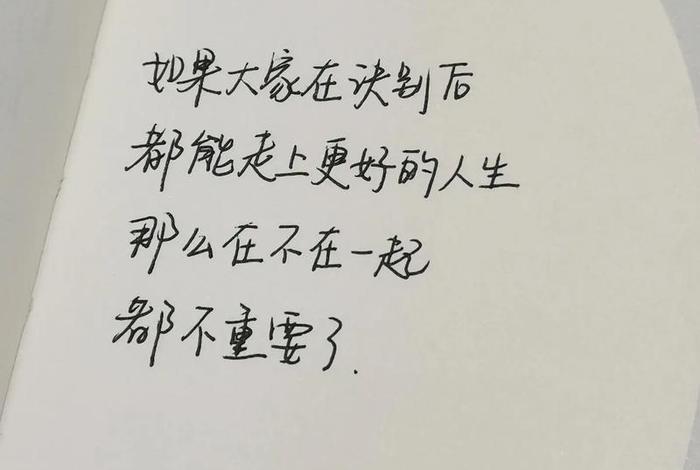 如果大家在诀别后
都能走上更好的人生
那么在不在一起
都不重要了.